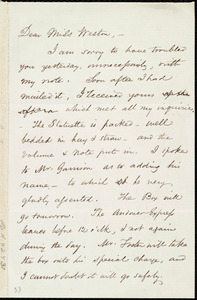 Dear Miss Weston, —
I am sorry to have troubled
you yesterday, unnecessarily, with
my note. Soon after I had
mailed it, I received yours
which met all my inquiries
— The Statuette is packed — well
bedded in hay & straw — and the
volume & note put in. I spoke
to Mr. Garrison as to adding his
name — to which he very
gladly assented. The Box will
go tomorrow. The
leaves before 12 o'clk, & not again
during the day. Mr. Foster will take
the box into his special charge, and
I cannot doubt it will go safely.